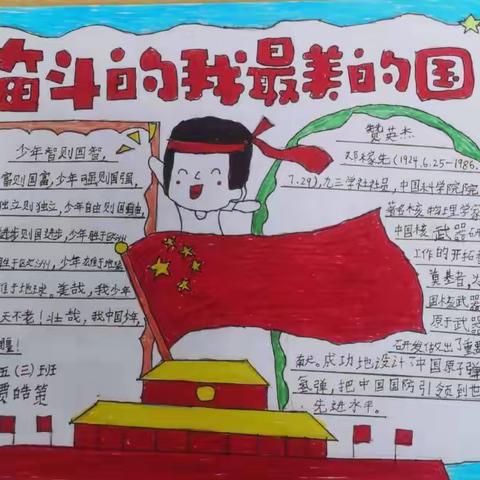 奋斗的我最美的国
少年智则国智,
富则国富,少年强则国强,
独立则独立,少年自由则国自由,
进步则国进步,少年胜于欧洲
胜于欧洲,少年雄于地球
雄于地球。美哉,我少年
天不老!壮哉,我中国少年,
疆!
五(三)班
皓策
赞英杰
邓稼先(1924.6.25-1986.
7.29),九三学社社员,中国科学院院
著名核物理学家
中国核武器研
工作的开拓者
奠基者,为
国核武器
原子武器
研发做出了重要
献。成功地设计了中国原子弹
氢弹,把中国国防引领到世
先进水平。